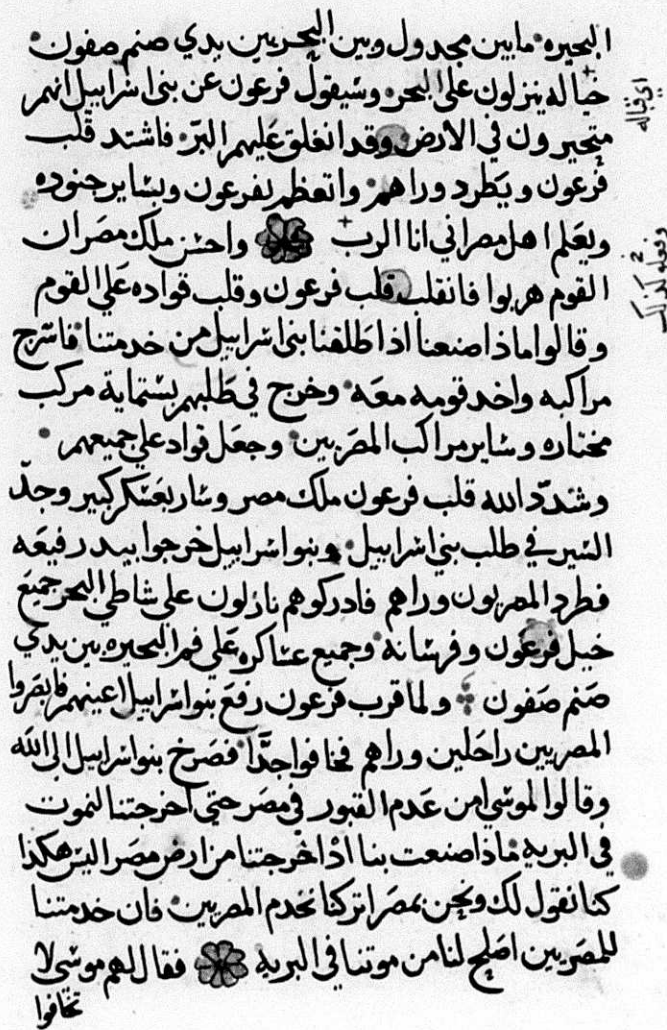 البحيره مابين مجدول وبين البحر بين يدي صنم صفون
حياله ينزلون على البحر وسيقول فرعون عن بنى اسراييل انهم
متحيرون في الارض وقد انغلق عليهم البرّ فاشتد قلب
فرعون ويطرد وراهم واتعظم بفرعون وبساير جنوده
ويعلم اهل مصر اني انا الرب واحسن ملك مصر ان
القوم هربوا فانقلب قلب فرعون وقلب قواده علي القوم
وقالوا ماذا صنعنا اذا طلقنا بنى اسراييل من خدمتنا فاسرج
مراكبه واخد قومه معه وخرج في طلبهم بستماية مركب
مختاره وساير مراكب المصريين وجعل قواد علي جميعهم
وشدّد الله قلب فرعون ملك مصر وسار بعسكر كبير وجدّ
السير في طلب بني اسراييل وبنوا اسراييل خرجوا بيد رفيعه
فطرد المصريون وراهم فادركوهم نازلون على شاطي البحر جميع
خيل فرعون وفرسانه وجميع عساكره علي فم البحيره بين يدي
صنم صفون ولما قرب فرعون رفع بنوا اسراييل اعينهم فابصروا
المصريين راحلين وراهم فخافوا جدّا فصرخ بنوا اسراييل الى الله
وقالوا لموسي امن عدم القبور في مصر حتي اخرجتنا لنموت
في البريه ماذا صنعت بنا اذ اخرجتنا من ارض مصر اليس هكذا
كنا نقول لك ونحن بمصر اتركنا نخدم المصريين فان خدمتنا
للمصريين اصلح لنا من موتنا في البرية فقال لهم موسي لا
تخافوا
اي قباله